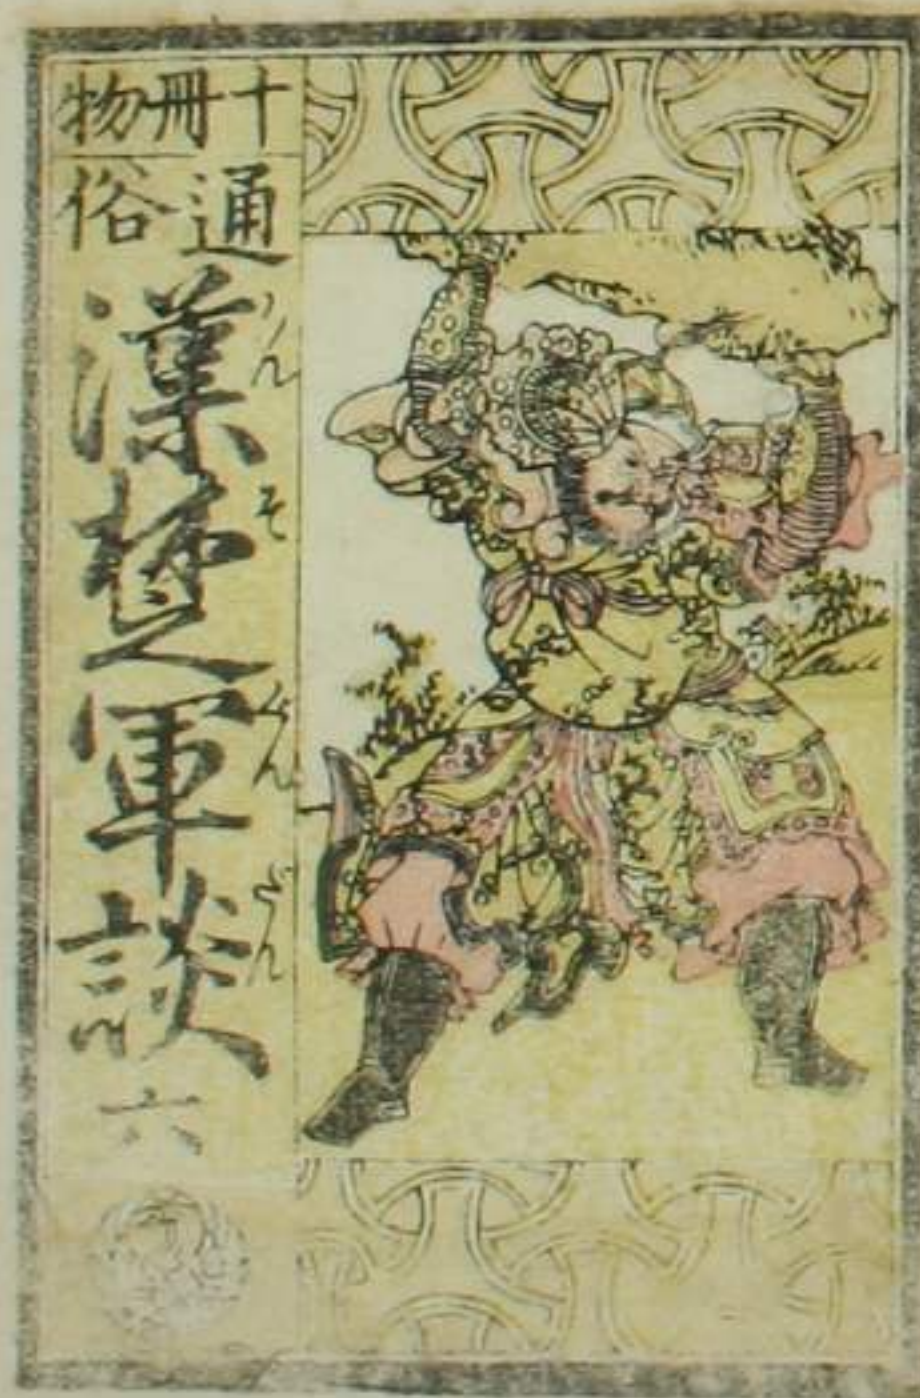 十冊物
通俗
漢楚軍談 六
かん そ ぐん だん